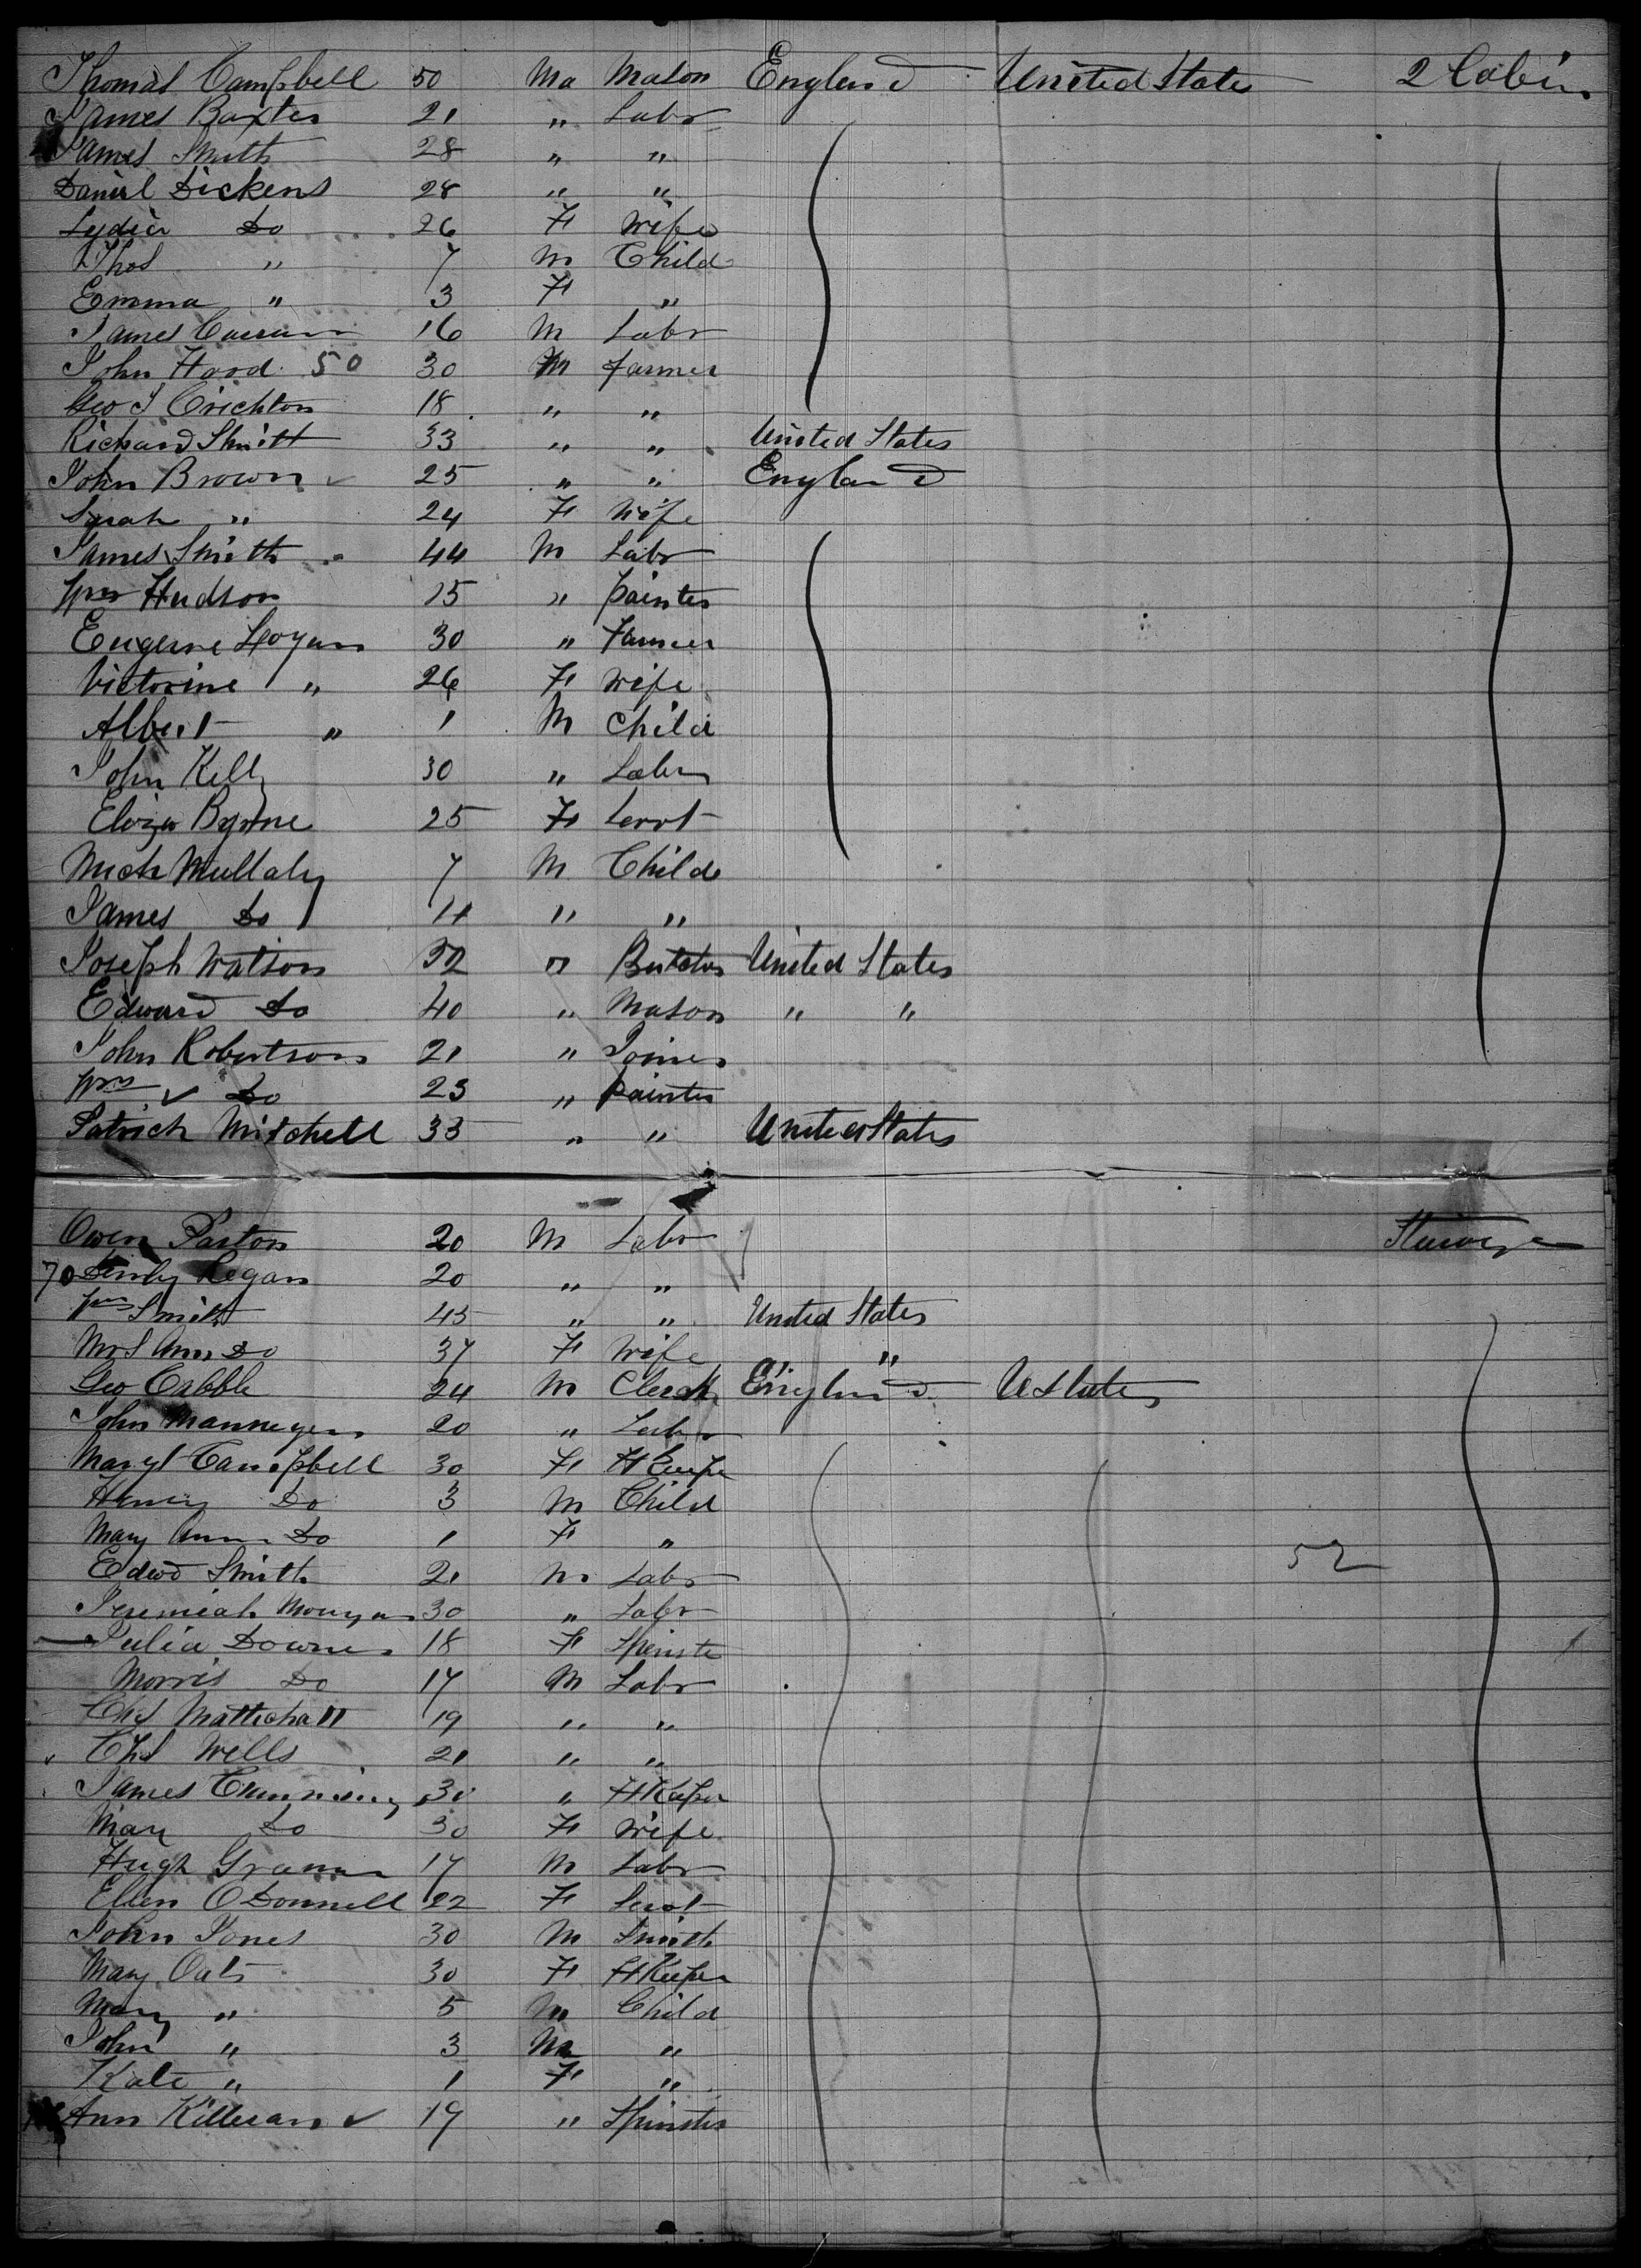 Thomas Campbell 50 Ma Mason England United State 2 Cabin
James Baxter 21 " Labr
James Smith 28 " "
Daniel Dickens 28 " "
Lydia Do 26 F Wife
Thos " 7 M Child
Emma " 3 F "
James Curran 16 M Labr
John Hood 50 30 M farmer
Geo J Crichton 18 " "
Richard Smith 33 " " United States
John Brown 25 " " England
Sarah " 24 F Wife
James Smith 44 M Labr
Wm Hudson 15 " painter
Eugene Logan 30 " Farmer
Victorine " 26 F Wife
Albert " 1 M Child
John Kelly 30 " Labr
Eliza Byrne 25 F Servt
Mich Mullaly 7 M Child
James Do 4 " "
Joseph Watson 32 " Butcher United States
Edward Do 40 " Mason " "
John Robertson 21 " Joiner
Wm Do 23 " painter
Patrick Mitchell 33 " " United States
Owen Parton 20 M Labr Steerage
70 Regan 20 " "
Wm Smith 45 " " United States
Mrs Ann Do 37 F Wife "
Geo Cabble 24 M Clerk England U States
John 20 " Labr
Mary Campbell 30 F H Keeper
Henry Do 3 M Child
Mary Ann Do 1 F " 52
Edwd Smith 21 M Labr
Jeremiah 30 " Labr
Julia Downes 18 F Spinster
Morris Do 17 M Labr
Chs 19 " "
Chs Wells 21 " "
James Cumming 30 " H Keeper
Mary Do 30 F Wife
Hugh 17 M Labr
Ellen O Donnell 22 F Servt
John Jones 30 M Smith
Mary Oats 30 F H Keeper
Mary " 5 M Child
John " 3 M "
Kate " 1 F "
Ann Killeran 19 " Spinster